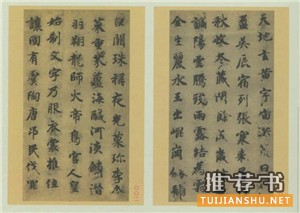 天地玄黄宇宙洪荒日月
盈昃辰宿列張寒來暑往
秋收冬藏閏餘成歲律吕
調陽雲騰致雨露結為霜
金生麗水玉出崐岡劍號
巨闕珠稱夜光菓珍李柰
菜重芥薑海醎河淡鱗潛
羽翔龍師火帝鳥官人皇
始制文字乃服衣裳推位
讓國有虞陶唐弔民伐罪
推荐书
TUIJIANSHU.NET